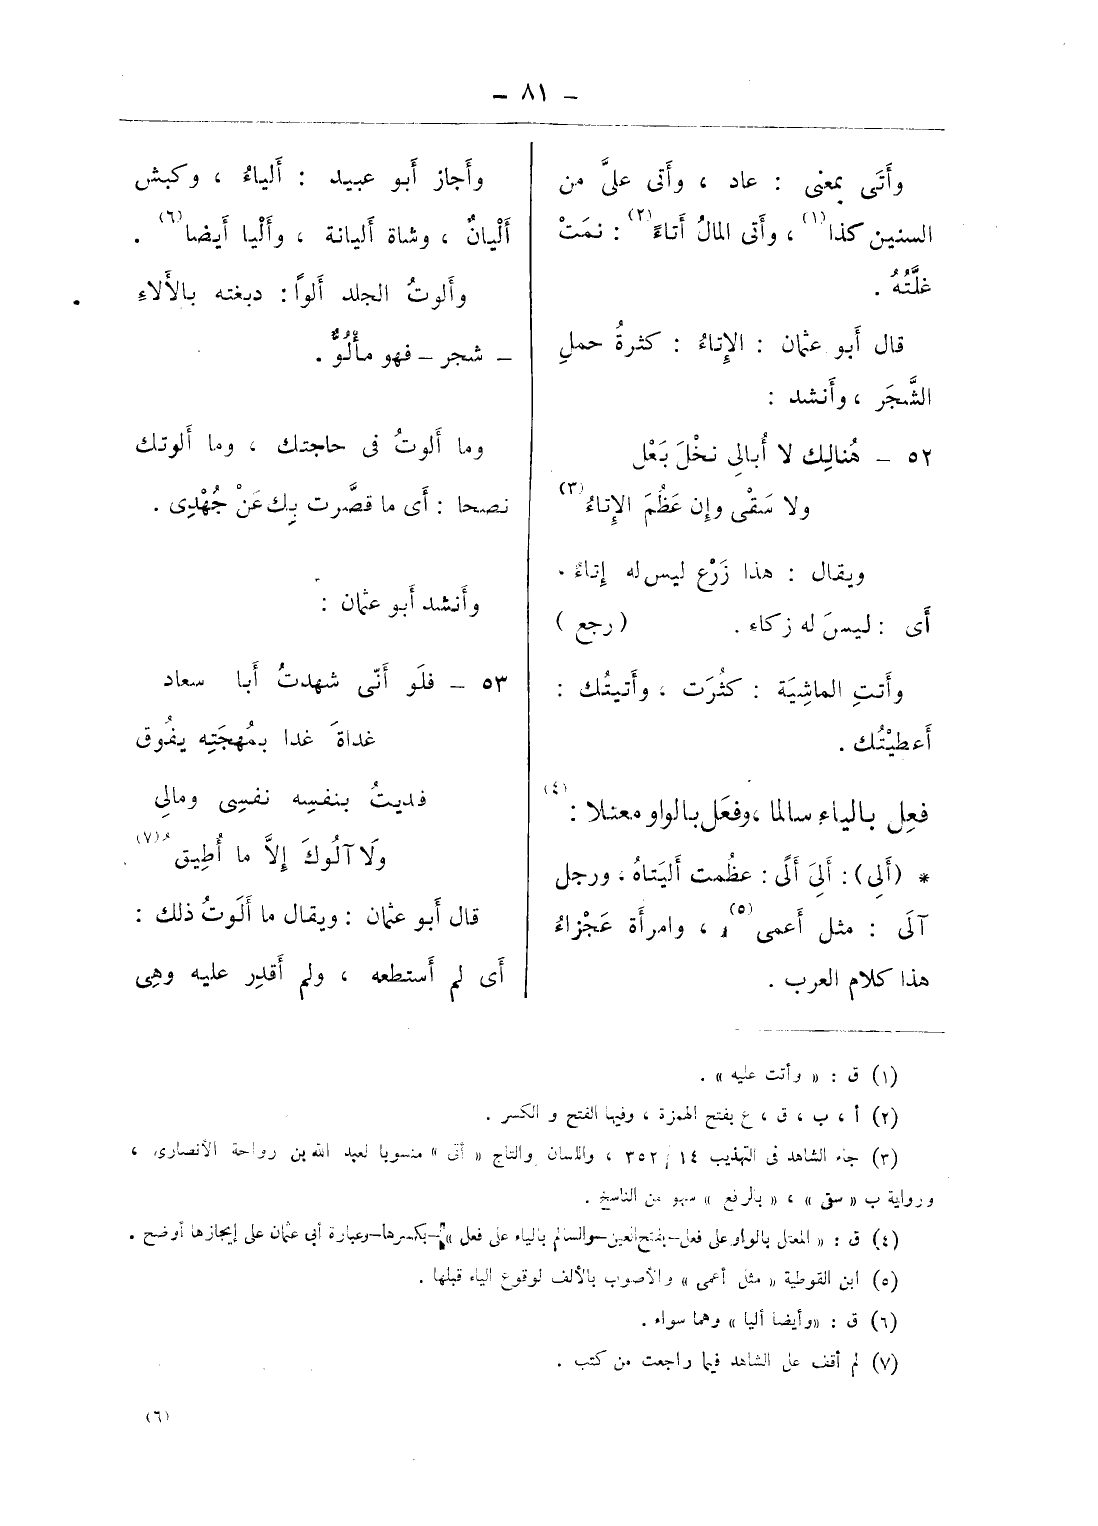 – ٨١ –
وأَتَى بمعنى : عاد ، وأَتى علىَّ من
السنين كذا(١) ، وأَتى المالُ أَتاءً(٢) : نمَتْ
غلَّتُهُ .
قال أَبو عثمان : الإِتاءُ : كثرةُ حملِ
الشَّجَر ، وأَنشد :
٥٢ – هُنالِك لا أُبالى نخْلَ بَعْل
ولا سَقْى وإِن عَظُمَ الإِتاءُ(٣)
ويقال : هذا زَرْع ليس له إِتاءٌ .
أَى : ليسَ له زكاء . (رجع)
وأَتتِ الماشِيَة : كثُرَت ، وأَتيتُك :
أَعطيْتُك .
فعِل بالياء سالما ، وفعَل بالواو معتلا(٤) :
* (أَلِى) : أَلِىَ أَلًى : عظُمت أَليَتاهُ ، ورجل
آلَى : مثل أَعمى(٥) ، وامرأَة عَجْزاءُ
هذا كلام العرب .
وأَجاز أَبو عبيد : أَلياءُ ، وكبش
أَلْيانٌ ، وشاة أَليانة ، وأَلْيا أَيضا(٦) .
وأَلوتُ الجلد أَلواً : دبغته بالأَلاءِ
– شجر – فهو مأْلُوٌّ .
وما أَلوتُ فى حاجتك ، وما أَلوتك
نصحا : أَى ما قصَّرت بِك عَنْ جُهْدِى .
وأَنشد أَبو عثمان :
٥٣ – فلَو أَنّى شهدتُ أَبا سعاد
غداةَ غدا بمُهجَتِه يفُوق
فديتُ بنفسِه نفسِى ومالِى
ولَا آلُوكَ إِلاَّ ما أُطِيق(٧)
قال أَبو عثمان : ويقال ما أَلَوتُ ذلك :
أَى لم أَستطعه ، ولم أَقدِر عليه وهِى
(١) ق : « وأتت عليه » .
(٢) أ ، ب ، ق ، ع بفتح الهمزة ، وفيها الفتح و الكسر .
(٣) جاء الشاهد فى التهذيب ١٤ / ٣٥٢ ، واللسان والتاج « أتى » منسوبا لعبد الله بن رواحة الأنصارى ،
ورواية ب « سقى » ، « بالرفع » سهو من الناسخ .
(٤) ق : « المعتل بالواو على فعل–بفتح العين–والسالم بالياء على فعل »–بكسرها–وعبارة أبى عثمان على إيجازها أوضح .
(٥) ابن القوطية « مثل أعمى » والأصوب بالألف لوقوع الياء قبلها .
(٦) ق : «وأيضا أليا » وهما سواء .
(٧) لم أقف على الشاهد فيما راجعت من كتب .
(٦)